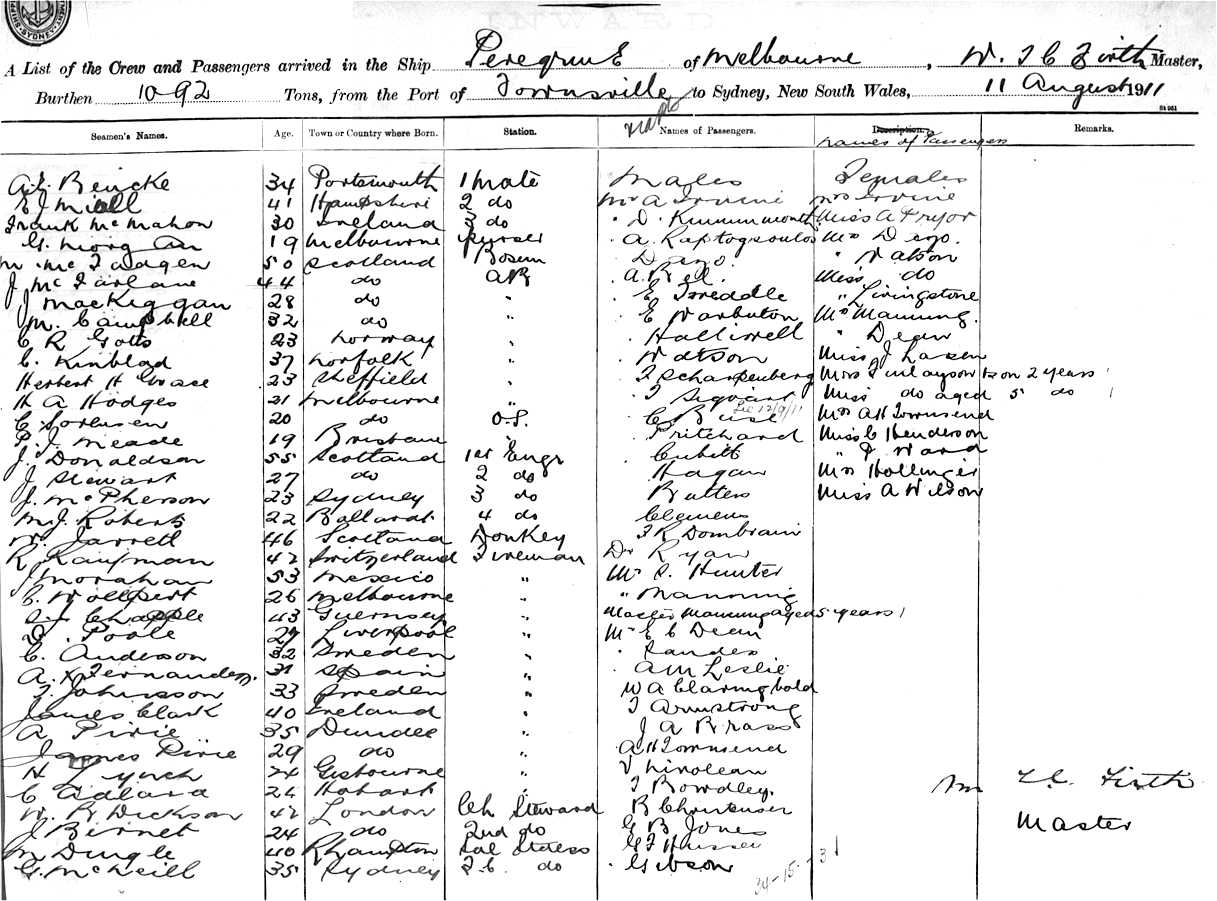 INWARD
A List of the Crew and Passengers arrived in the Ship Peregrine of Melbourne, W. T C Firth Master,
Burthen 1092 Tons, from the Port of Townsville to Sydney, New South Wales, 11 August 1911
Seamen's Names. Age. Town or Country where Born. Station. Names of Passengers. Description. Names of Passengers Remarks.
A.E. Bencke 34 Portsmouth 1 Mate Males Females
E J Miell 41 Hampshire 2 do Mr A Irvine Mrs Irvine
Frank McMahon 30 Ireland 3 do " D. Kinninmonth Miss A Pryor
G. Morgan 19 Melbourne Purser " A. Raptopsoulos Mrs Dezo.
M. McFadgen 50 Scotland Bosun " Dazo. " Watson
J McFarlane 44 do AB " A. Bel. Miss do
J MacKiggan 28 do " " E Tweddle " Livingstone
M. Campbell 32 do " " E Warbuton Mrs Manning.
C R Gotts 23 Norway " " Halliwell " Dean
C. Kinblad 37 Norfolk " " Watson Miss J Larsen
Herbert H Grace 23 Sheffield " " F Scharpenberg Mrs Finlayson & son 2 years 1
H A Hodges 21 Melbourne " " T Miss do aged 5 do 1
C Sorensen 20 do O.S. " C Mrs A H Townsend
P. J. Meade 19 Brisbane " Pritchard Miss C Henderson
J. Donaldson 55 Scotland 1st Engr " Cubitt " F Ward
J Stewart 27 do 2 do " Hagan Mrs Hollinger
J. McPherson 23 Sydney 3 do " Butters Miss A Wilson
M.J. Roberts 22 Ballarat 4 do Clemens
W. Jarrett 46 Scotland Donkey F R Dombrain
R Kaufman 42 Switzerland Fireman Dr Ryan
J Morahan 53 Mexico " Mr S. Hunter
C. Wollpert 26 Melbourne " " Manning
S J Chapple 43 Guernsey " Master Manning aged 5 years 1
D. Poole 27 Liverpool " Mr E C Dean
C. Anderson 32 Sweden " " Landes
A. X Fernandez. 31 Spain " " A M Leslie
F. Johnsson 33 Sweden " W A Claringbold
James Clark 40 Ireland " T Armstrong
A Pirie 35 Dundee " J A Brass
James Pirie 29 do " A H Townsend
H Lynch 24 Gisbourne " V Ninolean
C Adlard 24 Hobart " T Rowdley. Wm T.C. Firth
W. R Dickson 42 London Ch Steward R Christenser Master
J Bernet 24 do 2nd do G B Jones
M Dingle 40 Rhampton Sal Stress G F Hussey
G. McNeill 35 Sydney F.C. do " Gibson
34-15-31